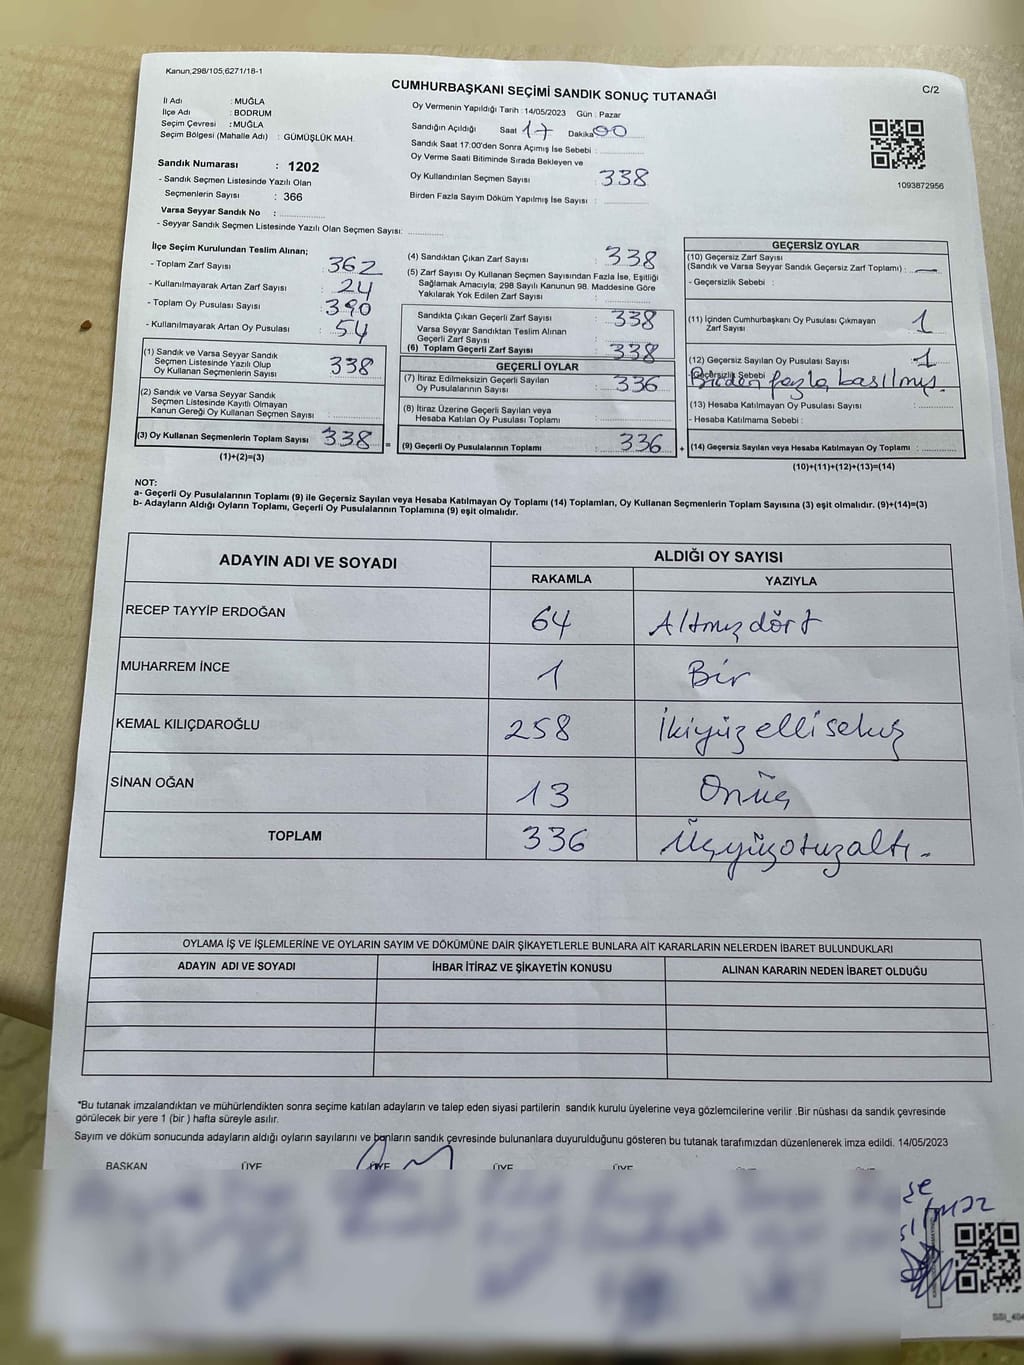 Kanun;298/105;6271/18-1
C/2
CUMHURBAŞKANI SEÇİMİ SANDIK SONUÇ TUTANAĞI
İl Adı : MUĞLA
İlçe Adı : BODRUM
Seçim Çevresi : MUĞLA
Seçim Bölgesi (Mahalle Adı) : GÜMÜŞLÜK MAH.
Sandık Numarası : 1202
- Sandık Seçmen Listesinde Yazılı Olan
Seçmenlerin Sayısı : 366
Varsa Seyyar Sandık No :
- Seyyar Sandık Seçmen Listesinde Yazılı Olan Seçmen Sayısı:
Oy Vermenin Yapıldığı Tarih : 14/05/2023 Gün : Pazar
Sandığın Açıldığı Saat 17 Dakika 00
Sandık Saat 17:00'den Sonra Açımış İse Sebebi :
Oy Verme Saati Bitiminde Sırada Bekleyen ve
Oy Kullandırılan Seçmen Sayısı : 338
Birden Fazla Sayım Döküm Yapılmış İse Sayısı :
1093872956
İlçe Seçim Kurulundan Teslim Alınan;
- Toplam Zarf Sayısı : 362
- Kullanılmayarak Artan Zarf Sayısı : 24
- Toplam Oy Pusulası Sayısı : 390
- Kullanılmayarak Artan Oy Pusulası : 54
(1) Sandık ve Varsa Seyyar Sandık
Seçmen Listesinde Yazılı Olup
Oy Kullanan Seçmenlerin Sayısı : 338
(2) Sandık ve Varsa Seyyar Sandık
Seçmen Listesinde Kayıtlı Olmayan
Kanun Gereği Oy Kullanan Seçmen Sayısı :
(3) Oy Kullanan Seçmenlerin Toplam Sayısı : 338 =
(1)+(2)=(3)
(4) Sandıktan Çıkan Zarf Sayısı : 338
(5) Zarf Sayısı Oy Kullanan Seçmen Sayısından Fazla İse, Eşitliği
Sağlamak Amacıyla, 298 Sayılı Kanunun 98. Maddesine Göre
Yakılarak Yok Edilen Zarf Sayısı :
Sandıkta Çıkan Geçerli Zarf Sayısı : 338
Varsa Seyyar Sandıktan Teslim Alınan
Geçerli Zarf Sayısı :
(6) Toplam Geçerli Zarf Sayısı : 338
GEÇERLİ OYLAR
(7) İtiraz Edilmeksizin Geçerli Sayılan
Oy Pusulalarının Sayısı : 336
(8) İtiraz Üzerine Geçerli Sayılan veya
Hesaba Katılan Oy Pusulası Toplamı :
(9) Geçerli Oy Pusulalarının Toplamı : 336 +
GEÇERSİZ OYLAR
(10) Geçersiz Zarf Sayısı
(Sandık ve Varsa Seyyar Sandık Geçersiz Zarf Toplamı) : —
- Geçersizlik Sebebi :
(11) İçinden Cumhurbaşkanı Oy Pusulası Çıkmayan
Zarf Sayısı : 1
(12) Geçersiz Sayılan Oy Pusulası Sayısı : 1
- Geçersizlik Sebebi Birden fazla basılmış.
(13) Hesaba Katılmayan Oy Pusulası Sayısı :
- Hesaba Katılmama Sebebi :
(14) Geçersiz Sayılan veya Hesaba Katılmayan Oy Toplamı :
(10)+(11)+(12)+(13)=(14)
NOT:
a- Geçerli Oy Pusulalarının Toplamı (9) ile Geçersiz Sayılan veya Hesaba Katılmayan Oy Toplamı (14) Toplamları, Oy Kullanan Seçmenlerin Toplam Sayısına (3) eşit olmalıdır. (9)+(14)=(3)
b- Adayların Aldığı Oyların Toplamı, Geçerli Oy Pusulalarının Toplamına (9) eşit olmalıdır.
ADAYIN ADI VE SOYADI ALDIĞI OY SAYISI
RAKAMLA YAZIYLA
RECEP TAYYİP ERDOĞAN 64 Altmış dört
MUHARREM İNCE 1 Bir
KEMAL KILIÇDAROĞLU 258 İkiyüz elli sekiz
SİNAN OĞAN 13 Onüç
TOPLAM 336 Üçyüzotuzaltı.
OYLAMA İŞ VE İŞLEMLERİNE VE OYLARIN SAYIM VE DÖKÜMÜNE DAİR ŞİKAYETLERLE BUNLARA AİT KARARLARIN NELERDEN İBARET BULUNDUKLARI
ADAYIN ADI VE SOYADI İHBAR İTİRAZ VE ŞİKAYETİN KONUSU ALINAN KARARIN NEDEN İBARET OLDUĞU
*Bu tutanak imzalandıktan ve mühürlendikten sonra seçime katılan adayların ve talep eden siyasi partilerin sandık kurulu üyelerine veya gözlemcilerine verilir .Bir nüshası da sandık çevresinde
görülecek bir yere 1 (bir ) hafta süreyle asılır.
Sayım ve döküm sonucunda adayların aldığı oyların sayılarını ve bonların sandık çevresinde bulunanlara duyurulduğunu gösteren bu tutanak tarafımızdan düzenlenerek imza edildi. 14/05/2023
BAŞKAN ÜYE ÜYE ÜYE ÜYE